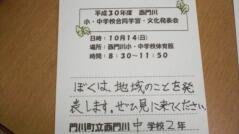 平成30年度 西門川
小・中学校合同学習・文化発表会
日時：10月14(日)
場所：西門川小・中学校体育館
時間：8：30～11：50
ぼくは、地域のことを発
表します。ぜひ見に来てください。
門川町立西門川中学校2年